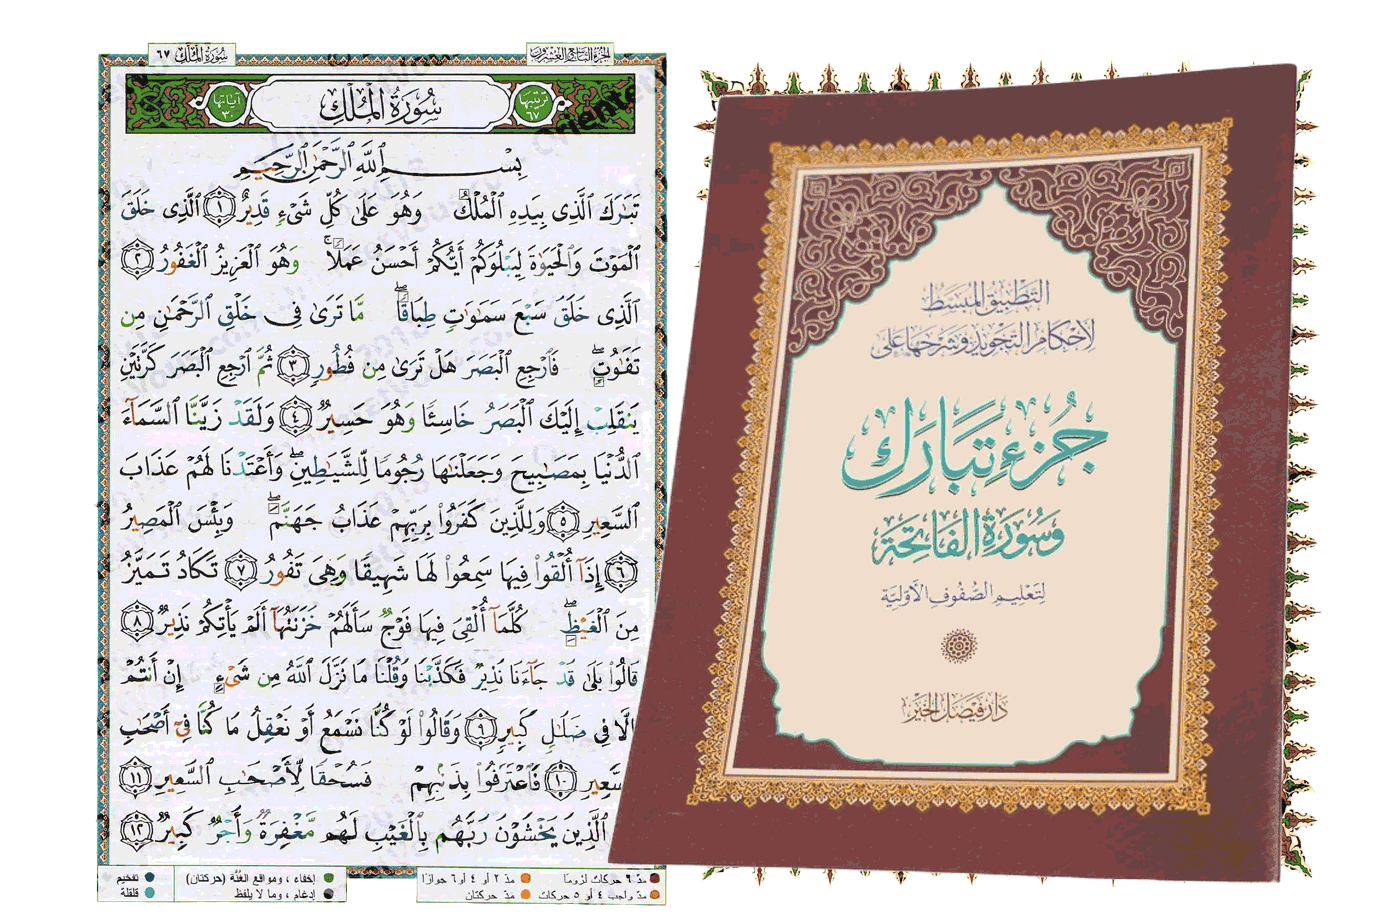 سُورَةُ المُلْكِ ٦٧
الجُزْءُ التَّاسِعُ وَالعِشْرُونَ
ترتيبها ٦٧
سُورَةُ الْمُلْكِ
آياتها ٣٠
بِسْمِ اللَّهِ الرَّحْمَٰنِ الرَّحِيمِ
تَبَٰرَكَ الَّذِى بِيَدِهِ الْمُلْكُ وَهُوَ عَلَىٰ كُلِّ شَىْءٍ قَدِيرٌ ١ الَّذِى خَلَقَ
الْمَوْتَ وَالْحَيَوٰةَ لِيَبْلُوَكُمْ أَيُّكُمْ أَحْسَنُ عَمَلًا ۚ وَهُوَ الْعَزِيزُ الْغَفُورُ ٢
الَّذِى خَلَقَ سَبْعَ سَمَٰوَٰتٍ طِبَاقًا ۖ مَّا تَرَىٰ فِى خَلْقِ الرَّحْمَٰنِ مِن
تَفَٰوُتٍ ۖ فَارْجِعِ الْبَصَرَ هَلْ تَرَىٰ مِن فُطُورٍ ٣ ثُمَّ ارْجِعِ الْبَصَرَ كَرَّتَيْنِ
يَنقَلِبْ إِلَيْكَ الْبَصَرُ خَاسِئًا وَهُوَ حَسِيرٌ ٤ وَلَقَدْ زَيَّنَّا السَّمَآءَ
الدُّنْيَا بِمَصَٰبِيحَ وَجَعَلْنَٰهَا رُجُومًا لِّلشَّيَٰطِينِ ۖ وَأَعْتَدْنَا لَهُمْ عَذَابَ
السَّعِيرِ ٥ وَلِلَّذِينَ كَفَرُوا۟ بِرَبِّهِمْ عَذَابُ جَهَنَّمَ ۖ وَبِئْسَ الْمَصِيرُ
٦ إِذَآ أُلْقُوا۟ فِيهَا سَمِعُوا۟ لَهَا شَهِيقًا وَهِىَ تَفُورُ ٧ تَكَادُ تَمَيَّزُ
مِنَ الْغَيْظِ ۖ كُلَّمَآ أُلْقِىَ فِيهَا فَوْجٌ سَأَلَهُمْ خَزَنَتُهَآ أَلَمْ يَأْتِكُمْ نَذِيرٌ ٨
قَالُوا۟ بَلَىٰ قَدْ جَآءَنَا نَذِيرٌ فَكَذَّبْنَا وَقُلْنَا مَا نَزَّلَ اللَّهُ مِن شَىْءٍ إِنْ أَنتُمْ
إِلَّا فِى ضَلَٰلٍ كَبِيرٍ ٩ وَقَالُوا۟ لَوْ كُنَّا نَسْمَعُ أَوْ نَعْقِلُ مَا كُنَّا فِىٓ أَصْحَٰبِ
السَّعِيرِ ١٠ فَاعْتَرَفُوا۟ بِذَنۢبِهِمْ فَسُحْقًا لِّأَصْحَٰبِ السَّعِيرِ ١١
الَّذِينَ يَخْشَوْنَ رَبَّهُم بِالْغَيْبِ لَهُم مَّغْفِرَةٌ وَأَجْرٌ كَبِيرٌ ١٢
مدّ ٦ حركات لزومًا
مدّ ٢ أو ٤ أو ٦ جوازًا
مدّ واجب ٤ أو ٥ حركات
مدّ حركتان
إخفاء ، ومواقع الغُنَّة (حركتان)
إدغام ، وما لا يلفظ
تفخيم
قلقلة
التَّطبِيقُ المُبَسَّط
لِأَحْكَامِ التَّجْوِيْدِ وَشَرْحَهَا عَلَى
جُزْءِ تَبَارَكَ
وَسُورَةِ الفَاتِحَة
لِتَعْلِيمِ الصُّفُوفِ الأَوَّلِيَّة
دَار فَيْصَل الخَيْر